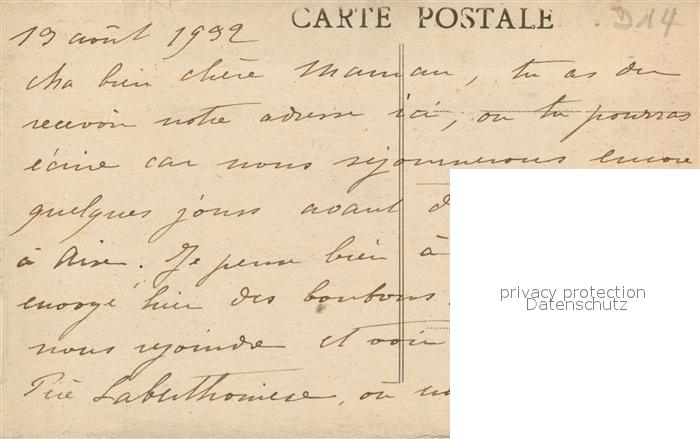 CARTE POSTALE
D14
13 août 1932
Ma bien chère Maman, tu as du
recevoir notre adresse ici, ou tu pourras
écrire car nous séjournerons encore
quelques jours avant d
à Aire. Je pense bien à
envoyé hier des bonbons.
nous rejoindre et voir
Père Laberthonière, où
privacy protection
Datenschutz